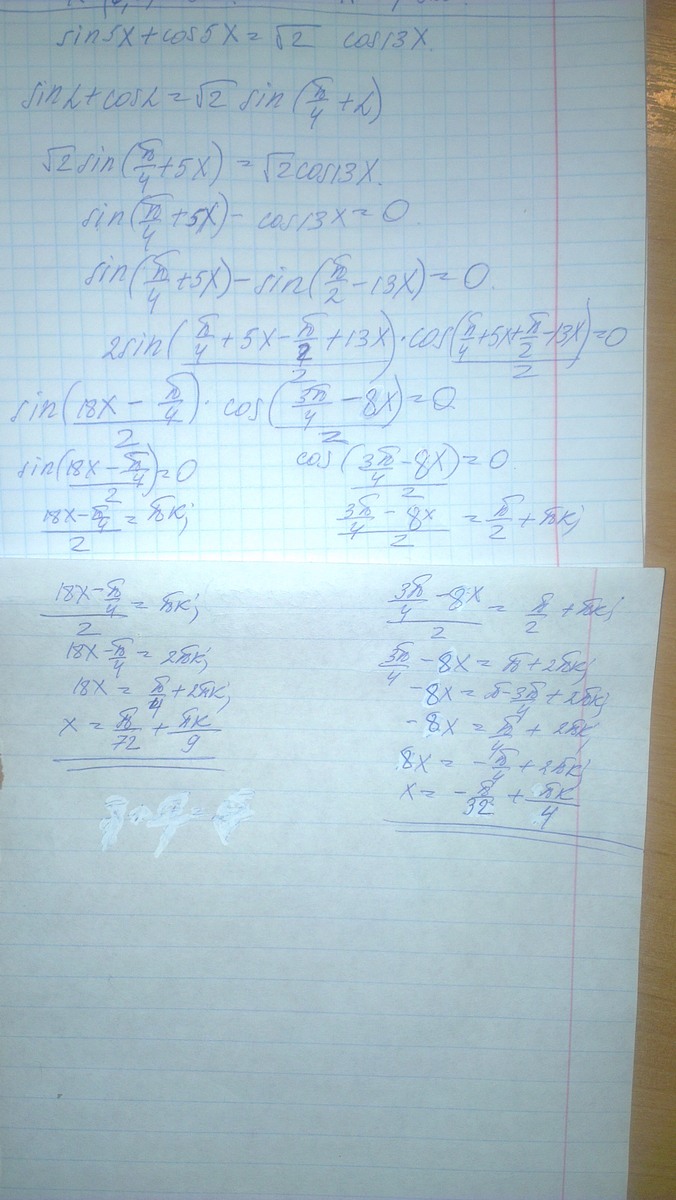 sin5x + cos5x = √2 cos13x.
sinα + cosα = √2 sin(π/4 + α)
√2 sin(π/4 + 5x) = √2 cos13x.
sin(π/4 + 5x) - cos13x = 0.
sin(π/4 + 5x) - sin(π/2 - 13x) = 0.
2sin((π/4 + 5x - π/2 + 13x)/2) · cos((π/4 + 5x + π/2 - 13x)/2) = 0
sin((18x - π/4)/2) · cos((3π/4 - 8x)/2) = 0
sin((18x - π/4)/2) = 0 cos((3π/4 - 8x)/2) = 0.
(18x - π/4)/2 = πk; (3π/4 - 8x)/2 = π/2 + πk;
(18x - π/4)/2 = πk; (3π/4 - 8x)/2 = π/2 + πk;
18x - π/4 = 2πk; 3π/4 - 8x = π + 2πk;
18x = π/4 + 2πk; -8x = π - 3π/4 + 2πk;
x = π/72 + πk/9 -8x = π/4 + 2πk;
8x = -π/4 + 2πk;
x = -π/32 + πk/4